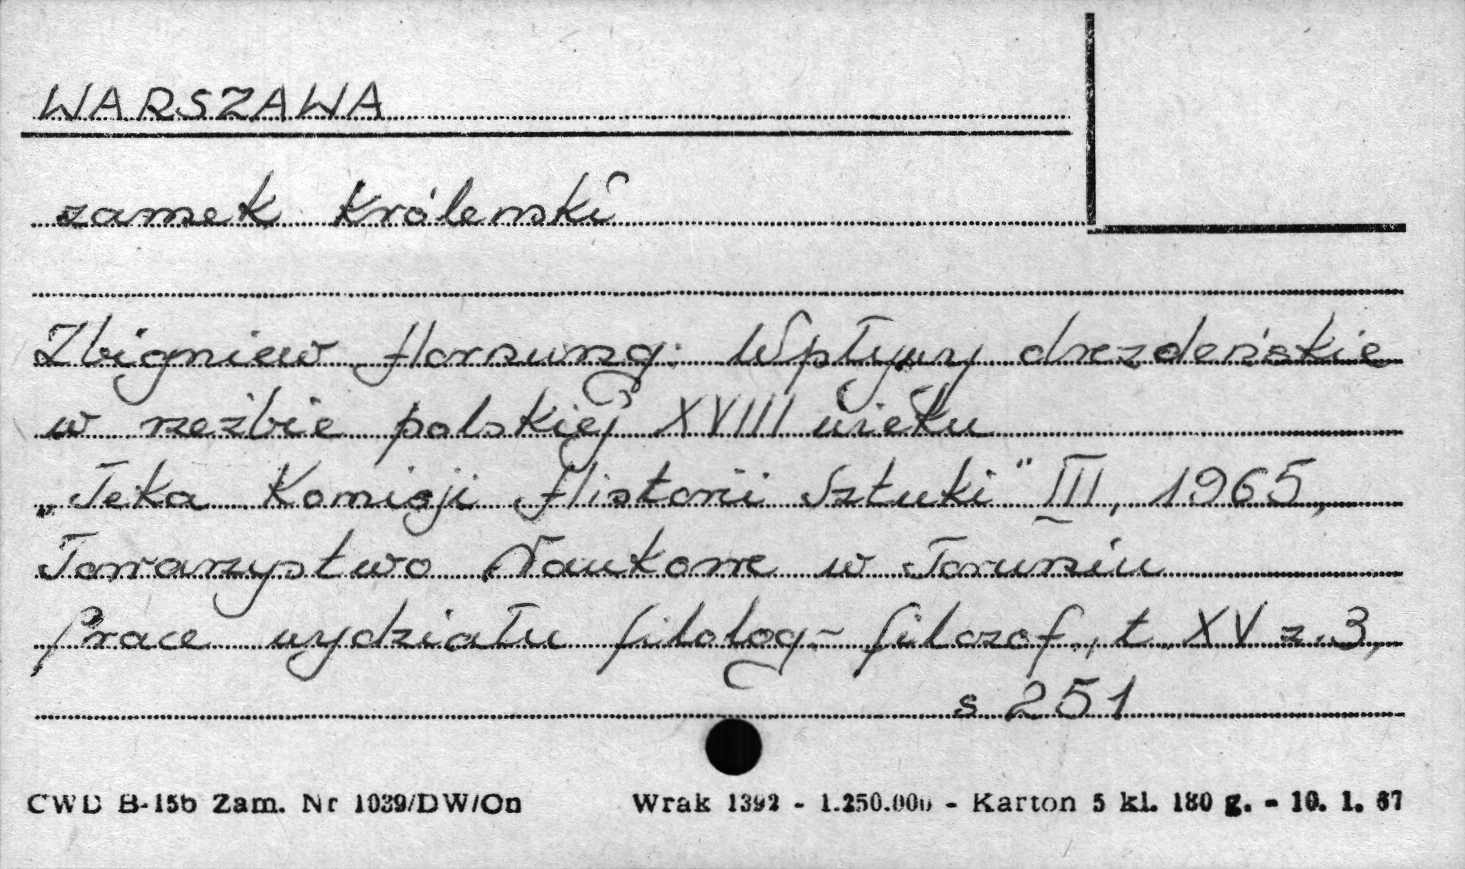 WARSZAWA
zamek Królewski
Zbigniew Hornung: Wpływy drezdeńskie
w rzeźbie polskiej XVIII wieku
„Teka Komisji Historii Sztuki" III, 1965,
Towarzystwo Naukowe w Toruniu
Prace wydziału filolog-filozof., t. XV z. 3,
s 251
CWD B-15b Zam. Nr 1039/DW/On Wrak 1392 - 1.250.000 - Karton 5 kl. 180 g. - 10. 1. 67